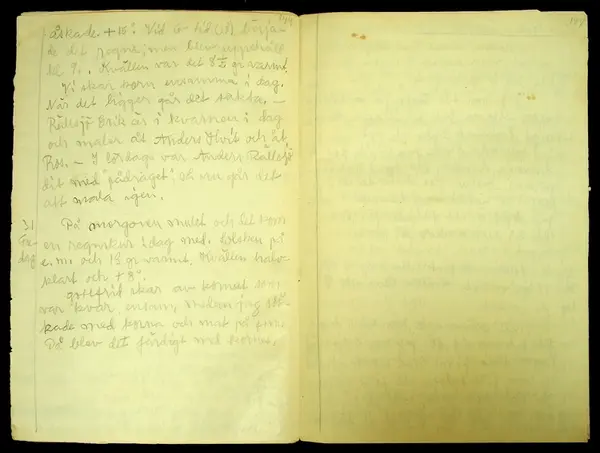 åskade. + 15°. Vid 6 tid (18) börja-
de det regna, men blev uppehåll
till 9. Kvällen var det 8 ½ gr varmt.
Vi skar korn ensamma i dag.
När det ligger går det sakta. —
Rällsjö Erik är i kvarnen i dag
och maler åt Anders Olvit och åt
— I lördags var Anders Rällsjö
dit med "pådraget", så nu går det
att mala igen.
31 På morgonen mulet och det kom
dag en regnskur i dag med. blåsten på
e.m. och 13 gr varmt. Kvällen halv-
klart och + 8°.
Gottfrid skar av kornet som
var kvar, ensam, medan jag
med korna och mat på
Då blev det färdigt med kornet.